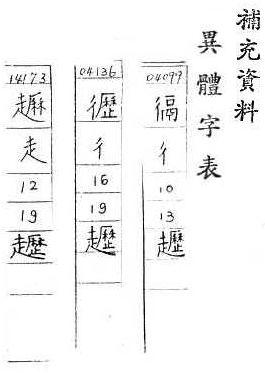 補充資料
異體字表
04099
彳
10
13
04136
彳
16
19
14173
走
12
19